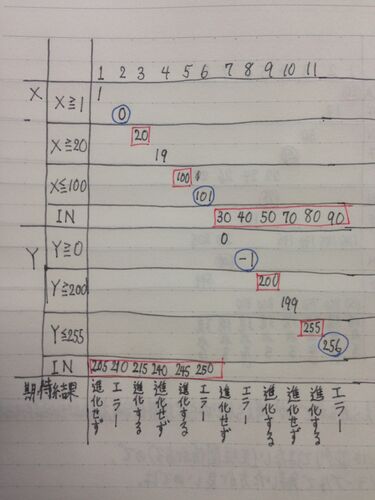 1 2 3 4 5 6 7 8 9 10 11
X X≧1 1
0
X≧20 20
19
X≦100 100
101
IN 30 40 50 70 80 90
Y Y≧0 0
-1
Y≧200 200
199
Y≦255 255
256
IN 205 210 215 240 245 250
期待結果 進化せず エラー 進化する 進化せず 進化する エラー 進化せず エラー 進化する 進化せず 進化する エラー